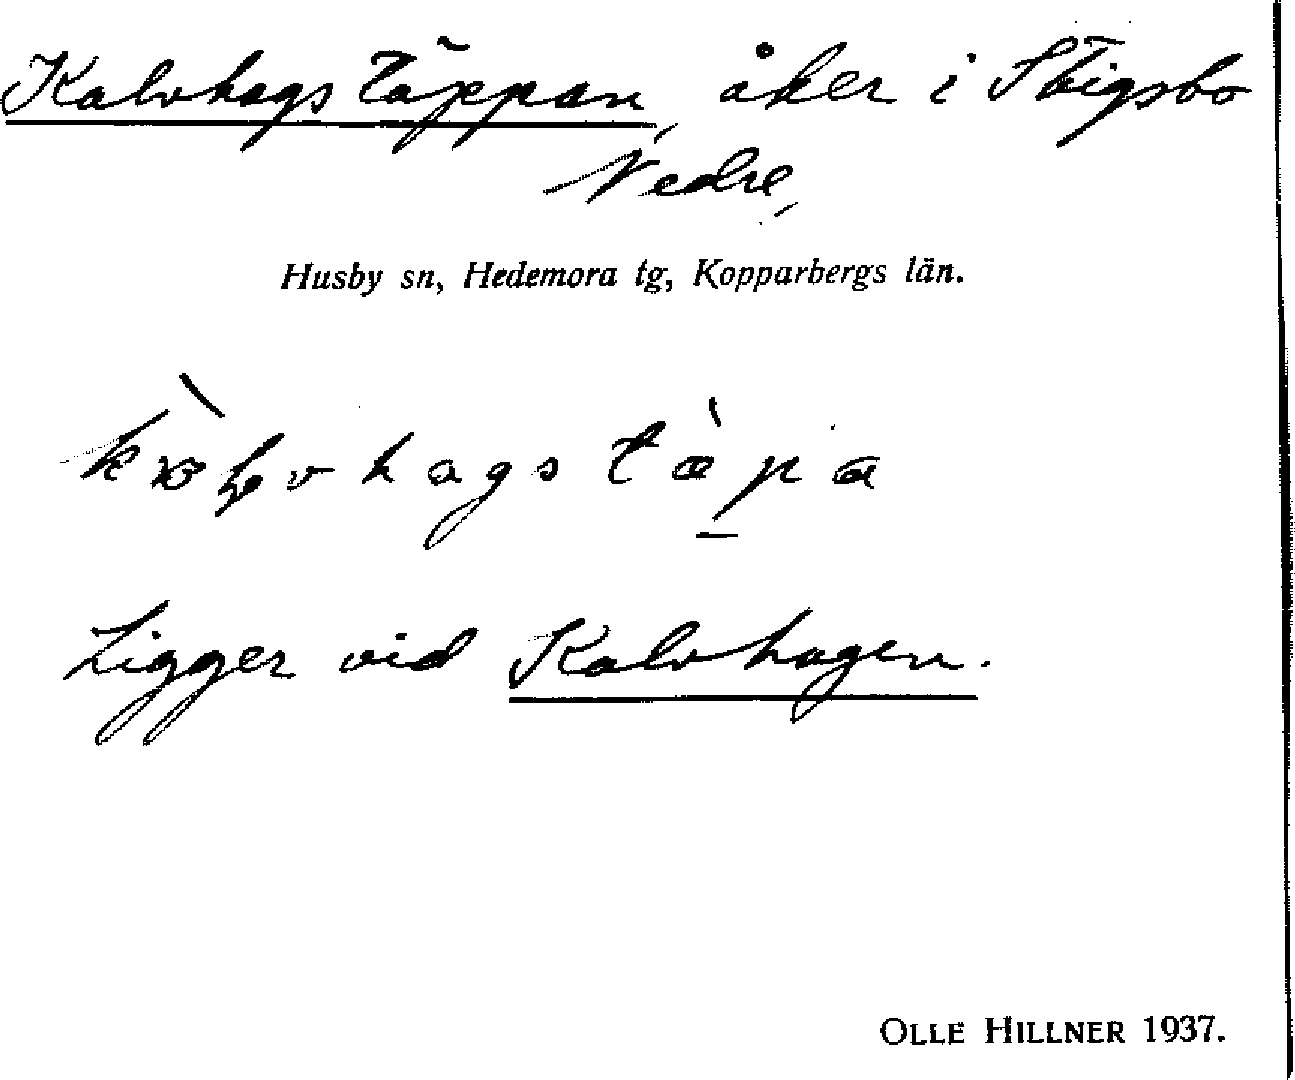 Kalvhagstäppan, åker i Stigsbo
Nedre,
Husby sn, Hedemora tg, Kopparbergs län.
Ligger vid Kalvhagen.
OLLE HILLNER 1937.